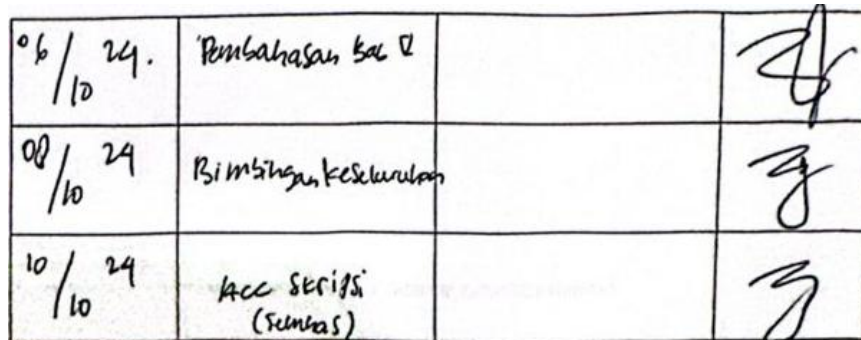 06/10 24. Pembahasan Bab V
08/10 24 Bimbingan keseluruhan
10/10 24 Acc Skripsi
(Semhas)